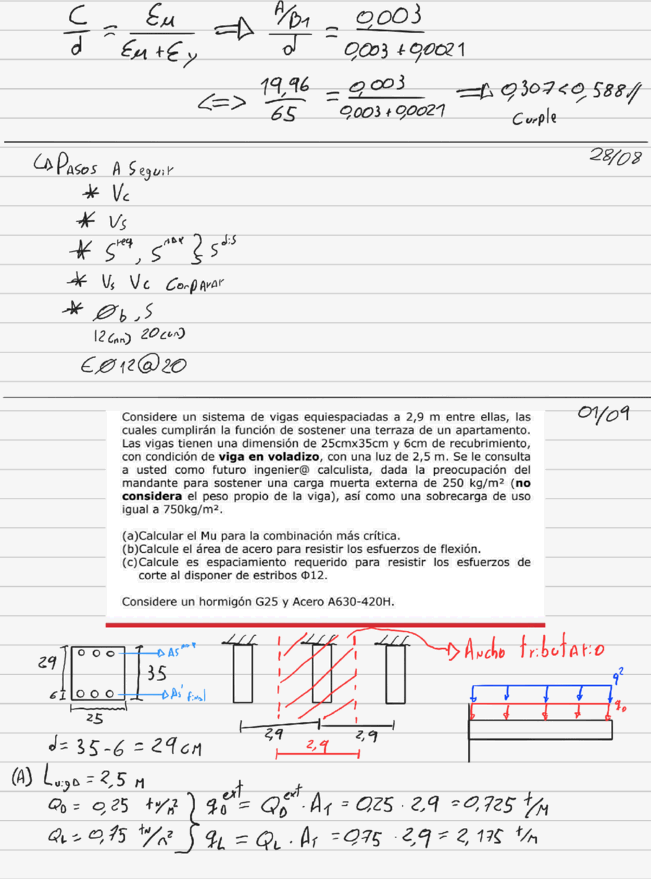 C/d = εμ/(εμ+εy) ⇒ (A/β1)/d = 0,003/(0,003+0,0021)
<=> 19,96/65 = 0,003/(0,003+0,0021) ⇒ 0,307<0,588//
Cumple
28/08
↳ Pasos A Seguir
* Vc
* Vs
* S^req, S^max } S^dis
* Vs Vc Comparar
* Øb, S
12(mm) 20(cm)
EØ12@20
01/09
Considere un sistema de vigas equiespaciadas a 2,9 m entre ellas, las
cuales cumplirán la función de sostener una terraza de un apartamento.
Las vigas tienen una dimensión de 25cmx35cm y 6cm de recubrimiento,
con condición de viga en voladizo, con una luz de 2,5 m. Se le consulta
a usted como futuro ingenier@ calculista, dada la preocupación del
mandante para sostener una carga muerta externa de 250 kg/m² (no
considera el peso propio de la viga), así como una sobrecarga de uso
igual a 750kg/m².
(a)Calcular el Mu para la combinación más crítica.
(b)Calcule el área de acero para resistir los esfuerzos de flexión.
(c)Calcule es espaciamiento requerido para resistir los esfuerzos de
corte al disponer de estribos Φ12.
Considere un hormigón G25 y Acero A630-420H.
Ancho tributario
29
6
35
25
As'
final
2,9
2,9
2,9
q²
q0
d = 35-6 = 29 cm
(A) Lviga = 2,5 m
QD = 0,25 tn/m² } qD^ext = QD^ext · AT = 0,25 · 2,9 = 0,725 t/m
QL = 0,75 tn/m² } qL = QL · AT = 0,75 · 2,9 = 2,175 t/m